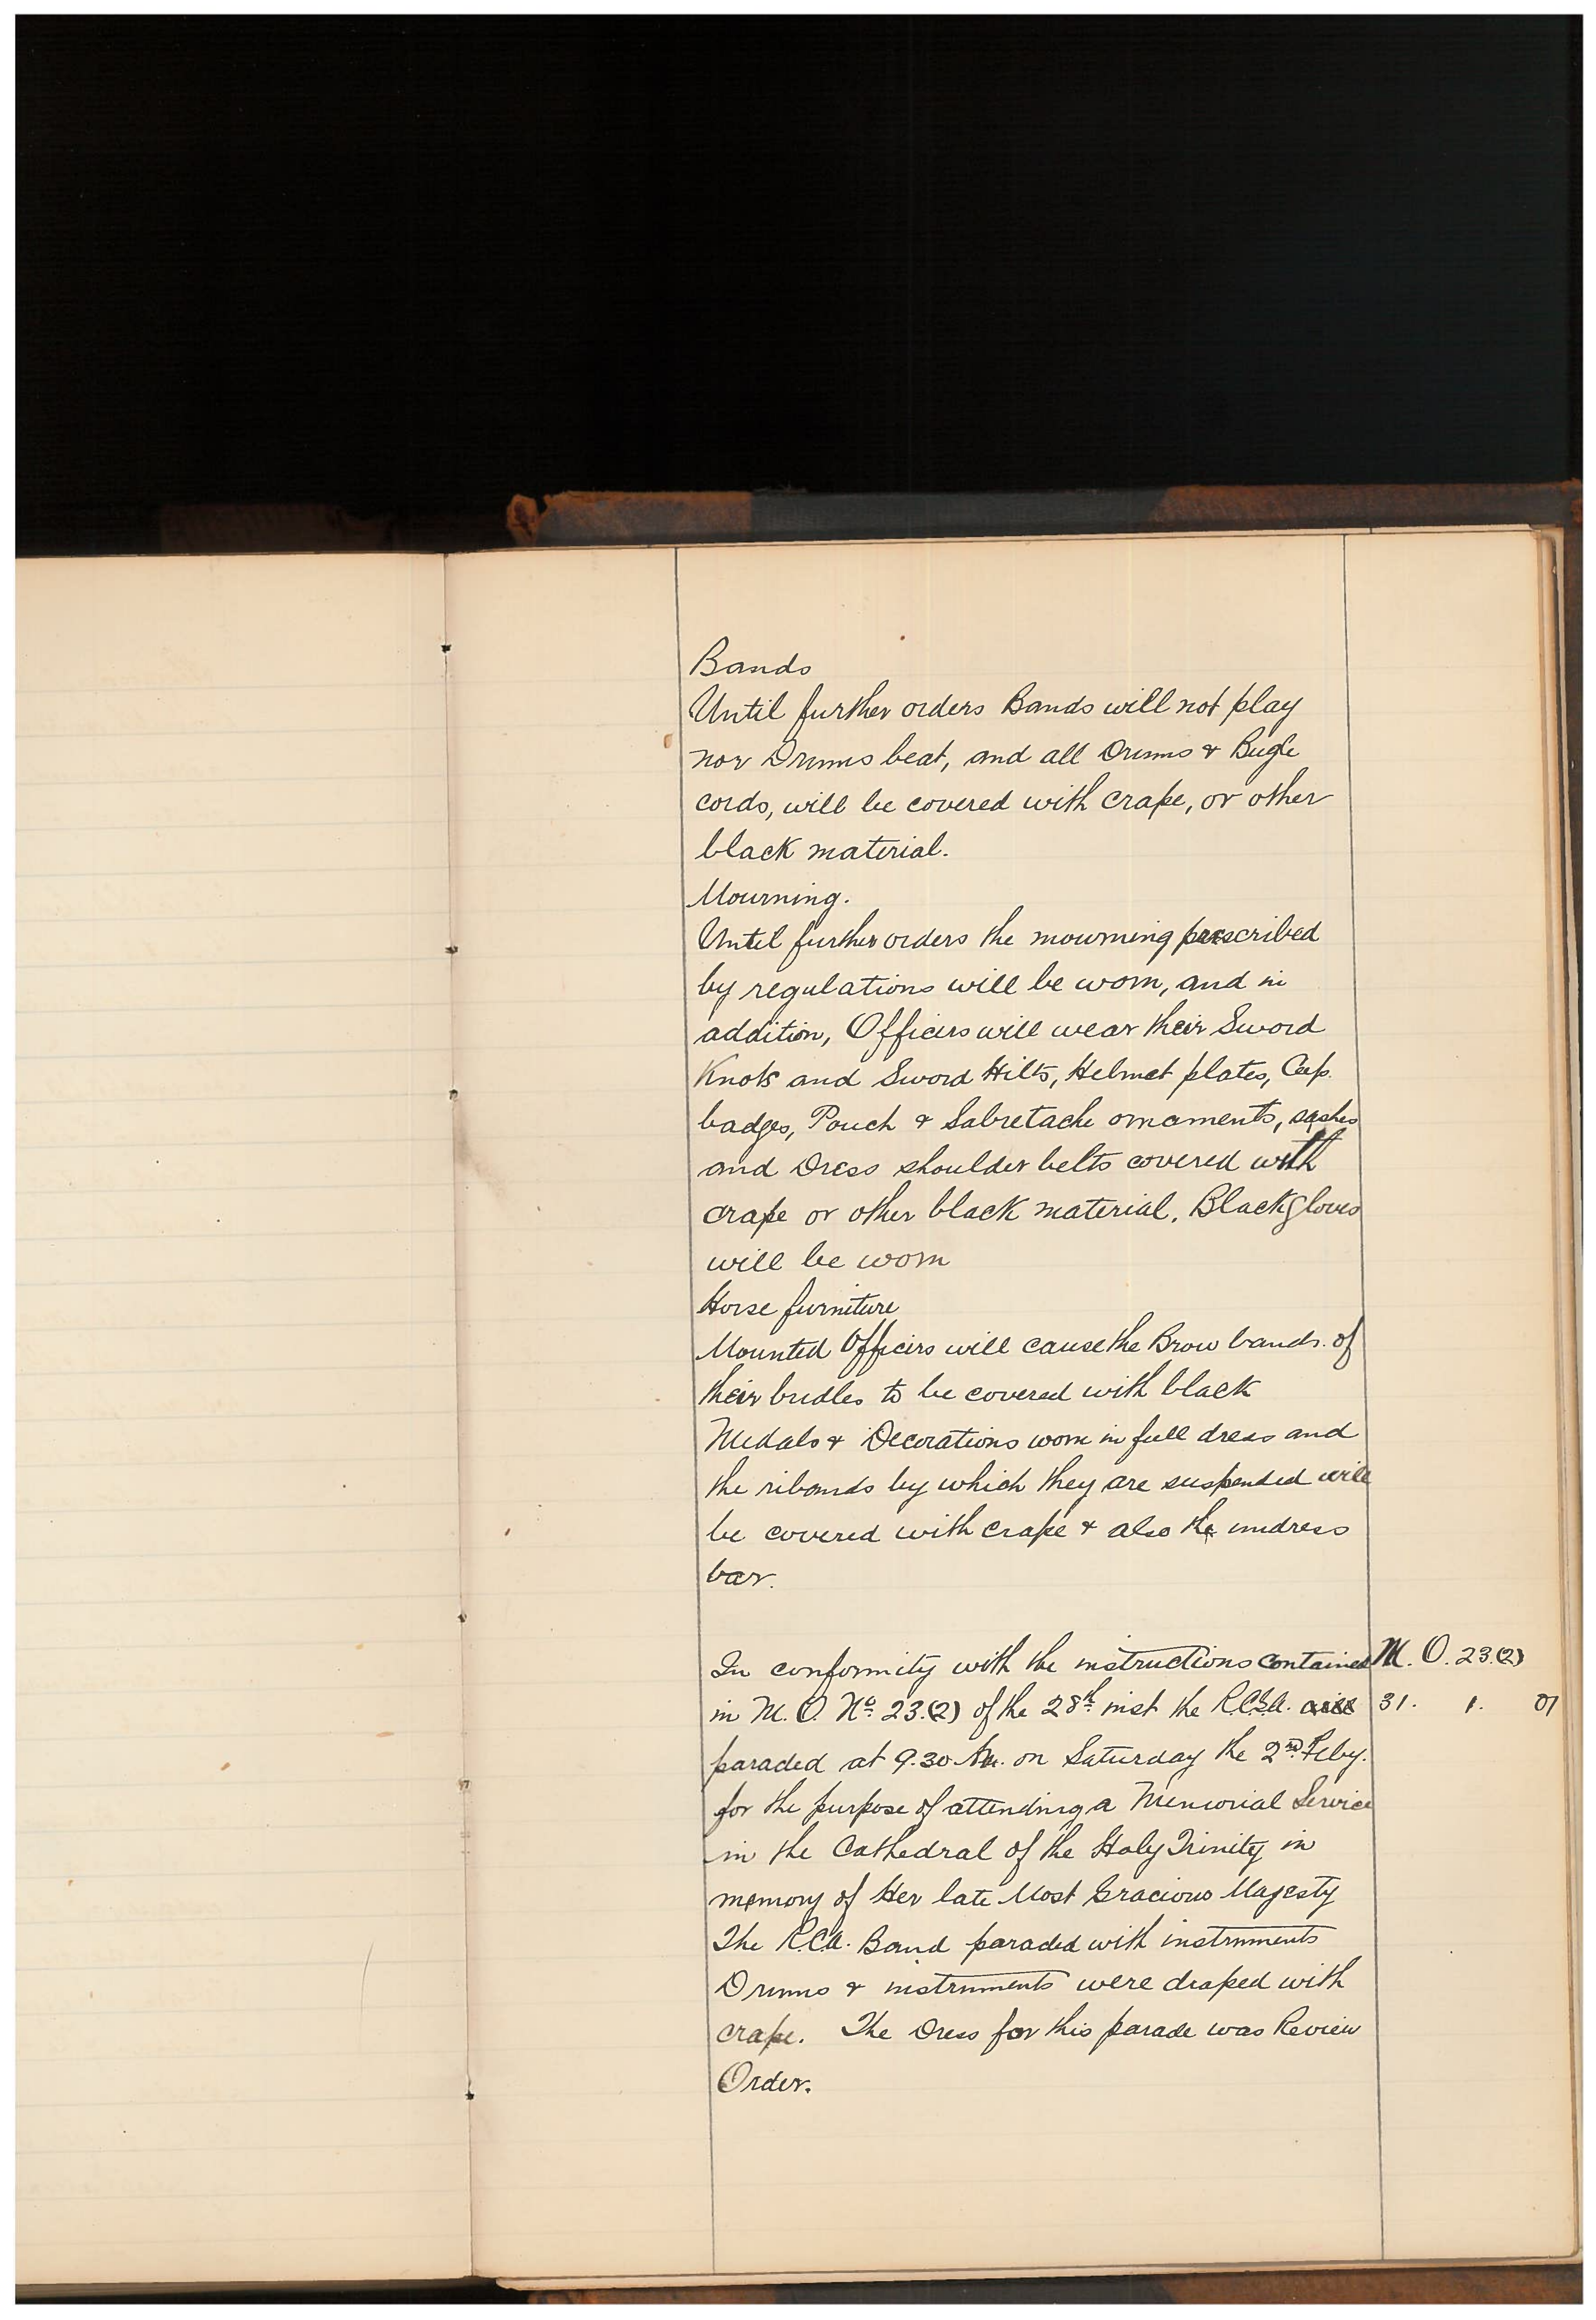 Bands
Until further orders Bands will not play
nor Drums beat, and all Drums & Bugle
cords, will be covered with crape, or other
black material.
Mourning.
Until further orders the mourning prescribed
by regulations will be worn, and in
addition, Officers will wear their Sword
Knots and Sword Hilts, Helmet plates, Cap.
badges, Pouch & Sabretache ornaments, sashes
and Dress shoulder belts covered with
crape or other black material. Black gloves
will be worn
Horse furniture
Mounted Officers will cause the Brow bands of
their bridles to be covered with black
Medals & Decorations worn in full dress and
the ribands by which they are suspended will
be covered with crape & also the undress
bar.
In conformity with the instructions contained M. O. 23.(2)
in M. O. No. 23.(2) of the 28th inst the 31. 1. 01
paraded at 9.30 on Saturday the 2nd Feby.
for the purpose of attending a Memorial Service
in the Cathedral of the Holy Trinity in
memory of Her late Most Gracious Magesty
The R.C.A. Band paraded with instruments
Drums & instruments were draped with
crape. The Dress for this parade was Review
Order.